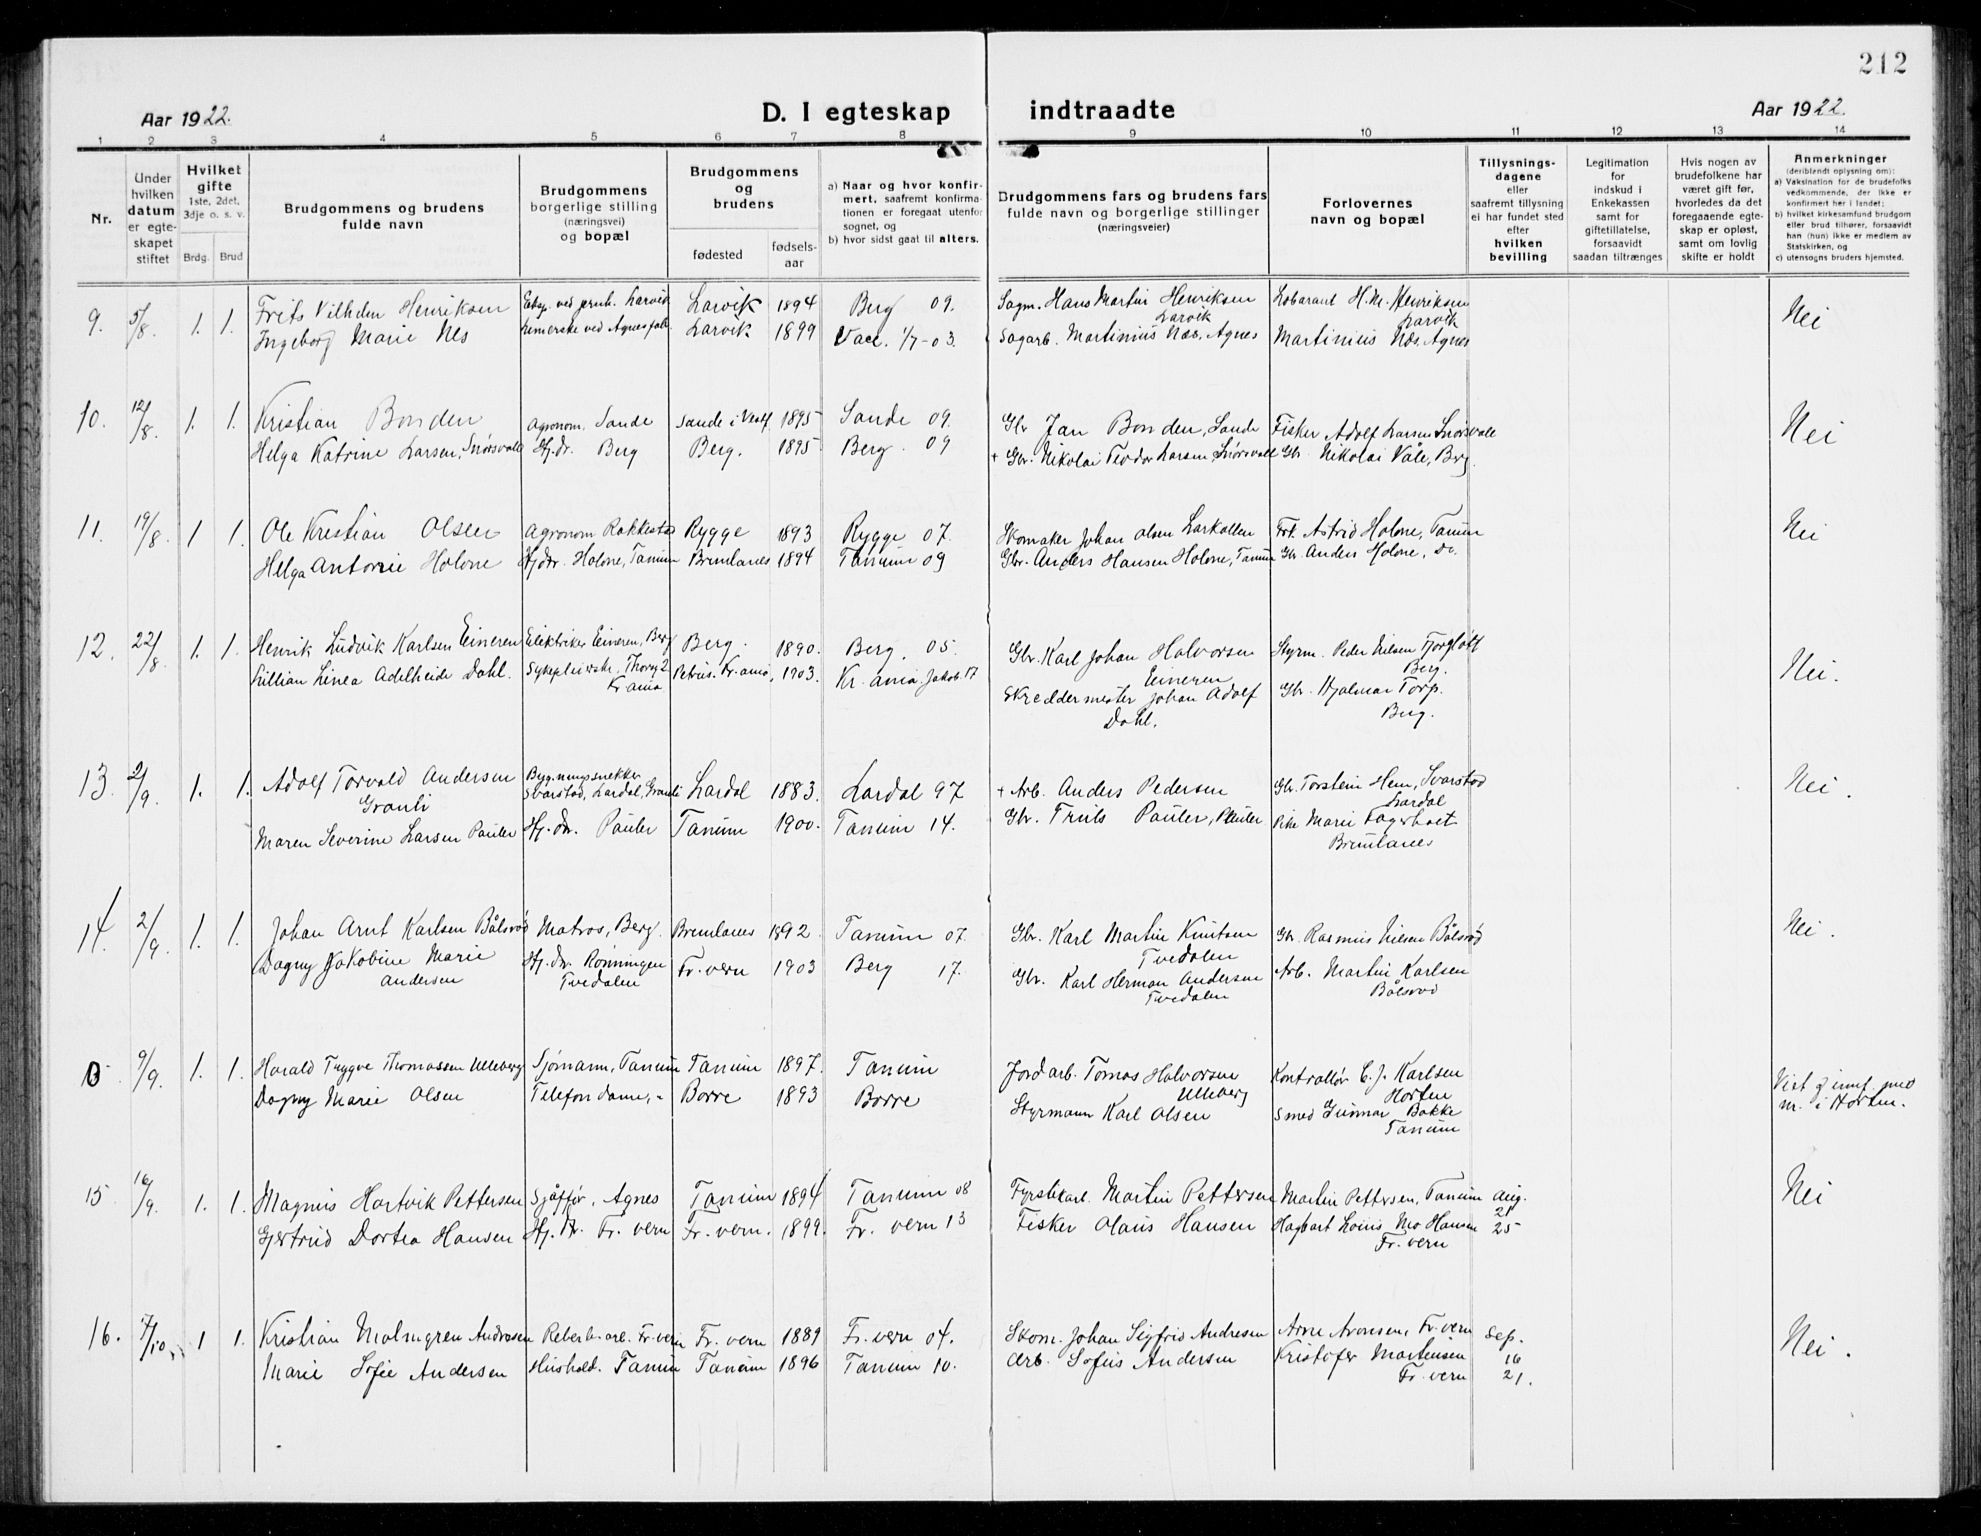 212
Aar 1922.
D. I egteskap indtraadte
Aar 1922.
1 2 3 4 5 6 7 8 9 10 11 12 13 14
Nr.
Under hvilken datum er egteskapet stiftet
Hvilket gifte 1ste, 2det, 3dje o. s. v.
Brdg. Brud
Brudgommens og brudens fulde navn
Brudgommens borgerlige stilling (næringsvei) og bopæl
Brudgommens og brudens
fødested
fødselsaar
a) Naar og hvor konfirmert, saafremt konfirmationen er foregaat utenfor sognet, og
b) hvor sidst gaat til alters.
Brudgommens fars og brudens fars fulde navn og borgerlige stillinger (næringsveier)
Forlovernes navn og bopæl
Tillysningsdagene eller saafremt tillysning ei har fundet sted efter hvilken bevilling
Legitimation for indskud i Enkekassen samt for giftetillatelse, forsaavidt saadan tiltrænges
Hvis nogen av brudefolkene har været gift før, hvorledes da det foregaaende egteskap er opløst, samt om lovlig skifte er holdt
Anmerkninger (deriblandt oplysning om):
a) Vaksination for de brudefolks vedkommende, der ikke er konfirmert her i landet;
b) hvilket kirkesamfund brudgom eller brud tilhører, forsaavidt han (hun) ikke er medlem av Statskirken, og
c) utensogns bruders hjemsted.
9. 5/8. 1. 1. Frits Vilhelm Henriksen ved Larvik Larvik 1894 Berg 09. Sagm. Hans Martin Henriksen Larvik H. M. Henriksen Larvik Nei
Ingeborg Marie Nes ved Agnes Larvik 1899 Vacc. 1/7-03. Sagarb. Martinius Næs, Agnes Martinius Næs, Agnes
10. 12/8. 1. 1. Kristian Bonden agronom, Sande Sande i Vestf. 1895 Sande 09. Gbr Jan Bonden, Sande Fisker Adolf Larsen Snørsvale Nei
Helga Katrine Larsen, Snørsvale Hj.dr. Berg Berg. 1895 Berg. 09 + Gbr. Nikolai Teodor Larsen, Snørsvale Gbr. Nikolai Vale, Berg.
11. 19/8. 1 1. Ole Kristian Olsen Agronom Rakkestad Rygge 1893 Rygge 07. Skomaker Johan Olsen Larkollen Frk. Astrid Holone, Tanum Nei
Helga Antonie Holone Hj.dtr. Holone, Tanum Brunlanes 1894 Tanum 09 Gbr. Anders Hansen Holone, Tanum Gbr. Anders Holone, Do.
12. 22/8. 1. 1. Henrik Ludvik Karlsen Eineren Elektriker Eineren, Berg Berg. 1890. Berg. 05. Gbr. Karl Johan Halvorsen Eineren Styrm. Peder Nielsen Berg. Nei.
Lillian Linea Adelheide Dahl. Sykepleierske, Thorvg 2 Kr.ania Petrus. Kr.ania, 1903. Kr.ania. Jakob. 17 Skreddermester Johan Adolf Dahl. Gbr. Hjalmar Torp. Berg.
13. 2/9. 1. 1. Adolf Torvald Andersen Granli Bygningssnekker Svarstad, Lardal, Granli Lardal 1883. Lardal 97 + Arb. Anders Pedersen Gbr. Torstein Hem, Svarstad Lardal Nei.
Maren Severine Larsen Pauler Hj.dr. Pauler Tanum 1900. Tanum 14. Gbr. Truls Pauler, Pauler Pike Marie Fagerholt Brunlanes
14. 2/9. 1. 1. Johan Arnt Karlsen Bålsrød Matros, Berg. Brunlanes 1892. Tanum 07. Gbr. Karl Martin Knutsen Tvedalen Gbr. Rasmus Nilsen Bålsrød Nei.
Dagny Jakobine Marie Andersen Hj.dr. Rønningen Tvedalen Fr.vern 1903 Berg 17. Gbr. Karl Herman Andersen Tvedalen Arb. Martin Karlsen Bålsrød
9/9. 1. 1. Harald Trygve Thomassen Ulleberg Sjømann, Tanum Tanum 1897. Tanum Jordarb. Tomas Halvorsen Ulleberg Kontrollør C. J. Karlsen Horten Viet i Horten.
Dagny Marie Olsen Telefondame, " Borre 1893 Borre Styrmann Karl Olsen Smed Gunnar Bakke Tanum
15. 16/9. 1. 1. Magnus Hartvik Pettersen Sjåffør, Agnes Tanum 1894 Tanum 08 Fyrstikarb. Martin Pettersen Martin Pettersen, Tanum Aug. 21 25 Nei
Gjertrud Dortea Hansen Hj.dr. Fr. vern Fr. vern. 1899. Fr. vern 13 Fisker Olaus Hansen Hagbart Louis Mo Hansen Fr. vern
16. 7/10. 1 1. Kristian Malmgren Andresen Reberb.arb. Fr.vern Fr. vern 1889 Fr. vern 04. Skom. Johan Sigfrid Andresen Arne Aronsen, Fr.vern Sep. 16 21. Nei.
Marie Sofie Andersen Hushold. Tanum Tanum 1896 Tanum 10. Arb. Sofus Andersen Kristofer Martinsen Fr. vern